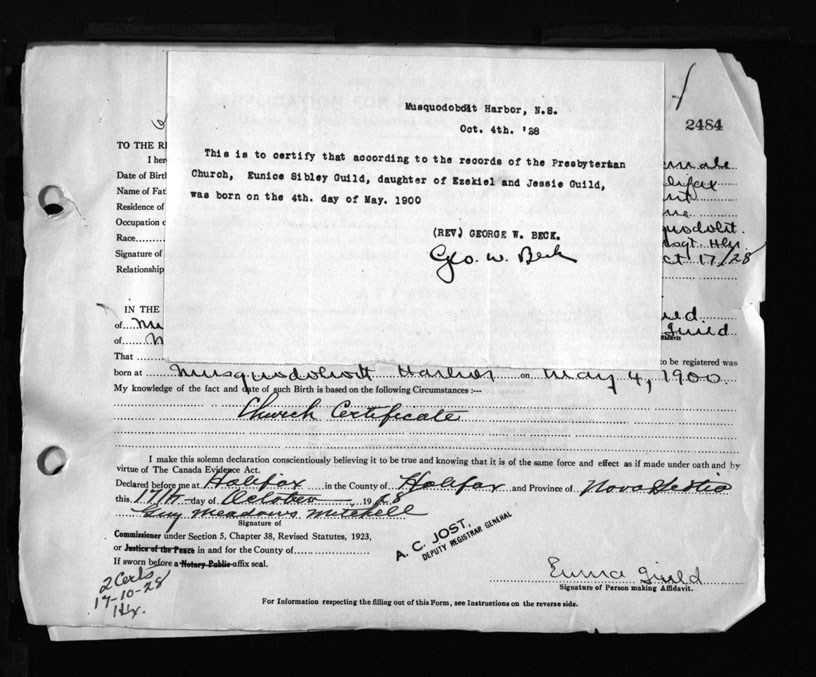 2484
Musquodoboit Harbor, N.S.
Oct. 4th. '28
This is to certify that according to the records of the Presbyterian
Church, Eunice Sibley Guild, daughter of Ezekiel and Jessie Guild,
was born on the 4th. day of May. 1900
(REV.) GEORGE W. BECK.
Geo. W. Beck
TO THE R
I her
Date of Birt
Name of Fat
Residence of
Occupation o
Race
Signature of
Relationship
ct 17/28
IN THE
of
Guild
of
That
to be registered was
born at Musquodoboit Harbor on May 4, 1900
My knowledge of the fact and date of such Birth is based on the following Circumstances :—
Church Certificate
I make this solemn declaration conscientiously believing it to be true and knowing that it is of the same force and effect as if made under oath and by
virtue of The Canada Evidence Act.
Declared before me at Halifax in the County of Halifax and Province of Nova Scotia
this 17th day of October, 1928
Guy Meadows Mitchell
Signature of
Commissioner under Section 5, Chapter 38, Revised Statutes, 1923,
or Justice of the Peace in and for the County of
If sworn before a Notary Public affix seal.
A. C. JOST,
DEPUTY REGISTRAR GENERAL
Emma Guild
Signature of Person making Affidavit.
2 Certs
17-10-28
For Information respecting the filling out of this Form, see Instructions on the reverse side.